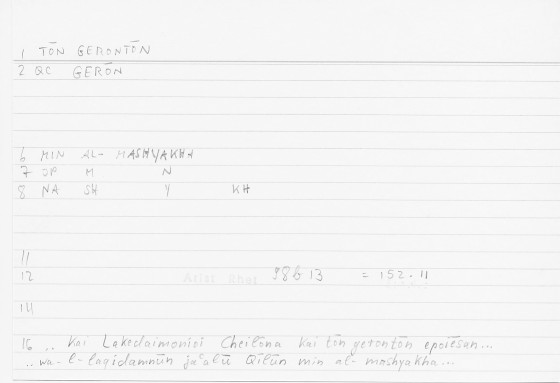 1 TŌN GERONTŌN
2 QC GERŌN
6 MIN AL- MASHYAKHA
7 OP M N
8 NA SH Y KH
11
12 Arist Rhet 98b 13 = 152.11
14
16 .. Kai Lakedaimonioi Cheilōna kai tōn gerontōn epoiēsan...
.. wa-l-laqidamūnūn jaʿalū Qīlūn min al-mashyakha...